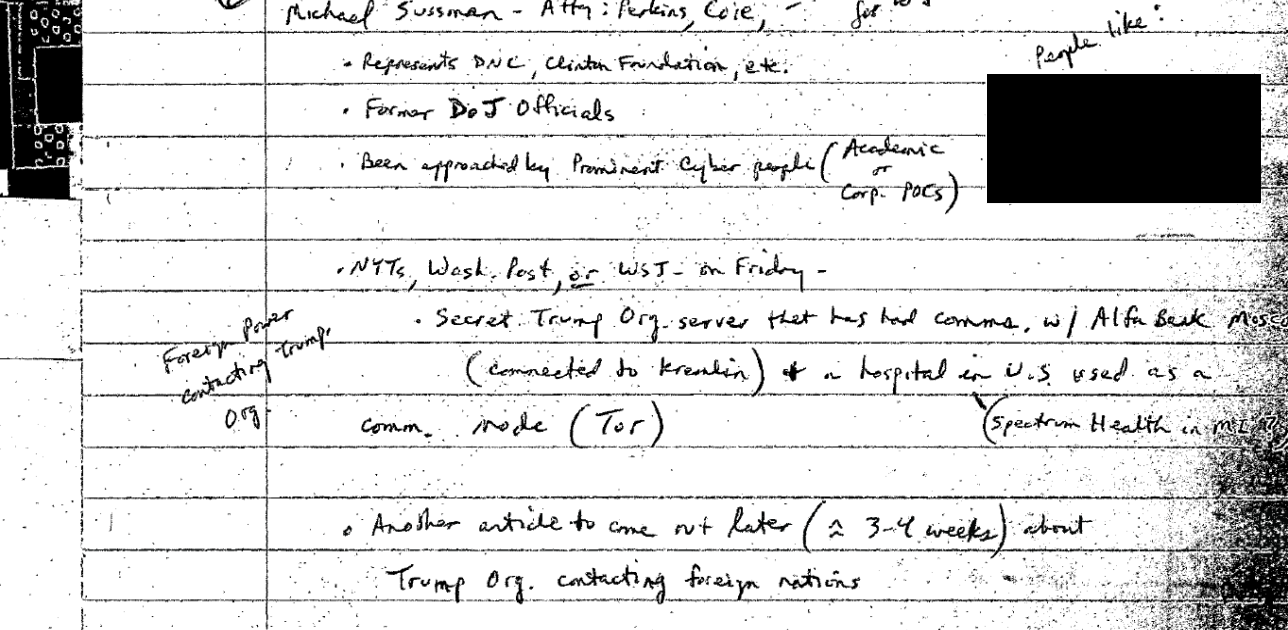 Michael Sussman - Atty: Perkins Coie, - for
People like:
• Represents DNC, Clinton Foundation, etc.
• Former DoJ Officials
• Been approached by Prominent Cyber people (Academic
or
Corp. POCs)
• NYTs, Wash. Post, or WSJ - on Friday -
• Secret Trump Org. server that has had comms. w/ Alfa Bank
Foreign Power
contacting Trump.
Org.
(connected to Kremlin) + a hospital in U.S. used as a
comm. node (Tor)
(Spectrum Health in MI
• Another article to come out later (≈ 3-4 weeks) about
Trump Org. contacting foreign nations